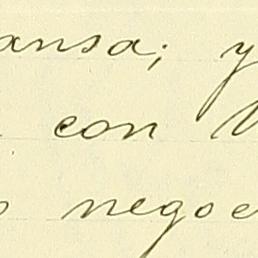 ansa; y
con
negoc